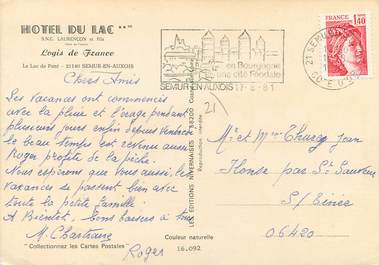 HOTEL DU LAC **NN
S.N.C. LAURENÇON et Fils
Logis de France
Le Lac de Pont - 21140 SEMUR-EN-AUXOIS
Chers Amis
Les vacances ont commencés
avec la pluie et l'orage pendant
plusieurs jours enfin depuis
le beau temps est revenu aussi
Roger profite de la pêche.
Nous espérons que vous aussi, les
vacances se passent bien avec
toute la petite famille
A Bientôt. Bons baisers à tous
M. Chartrang
Roger
"Collectionnez les Cartes Postales"
Couleur naturelle
16.092
LES EDITIONS NIVERNAISES
Reproduction interdite
en Bourgogne
une cité Féodale
SEMUR-EN-AUXOIS 17-6-81
21
21 SEMUR
CÔTE D'OR
FRANCE
1,40
M. et Mme Jean
par St Sauveur
S/ Tinée
06420